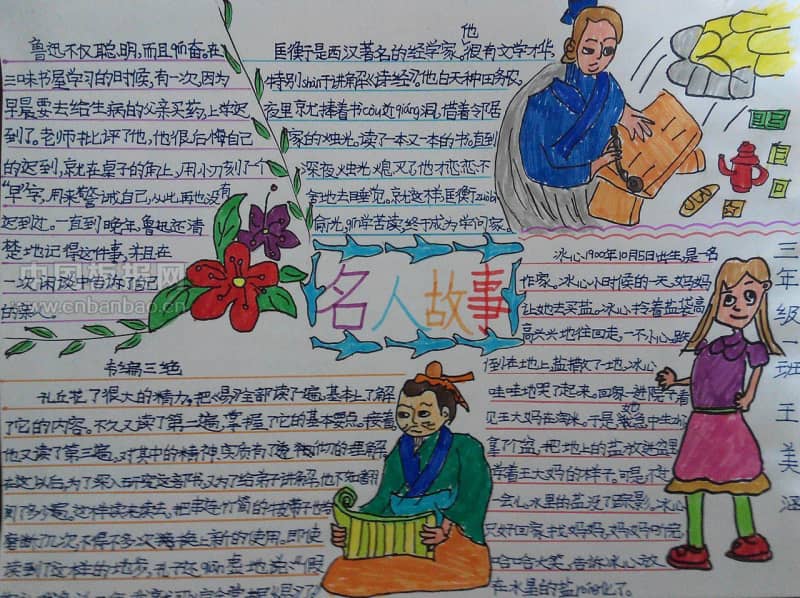 鲁迅不仅聪明,而且qín奋。在
三味书屋学习的时候,有一次,因为
早晨要去给生病的父亲买药,上学迟
到了。老师批评了他,他很后悔自己
的迟到,就在桌子的角上,用小刀刻了个
“早”字,用来警诫自己,从此再也没有
迟到过。一直到晚年,鲁迅还清
楚地记得这件事,并且在
一次闲谈中告诉了自己
匡衡于是西汉著名的经学家。他很有文学才华,
特别shàn于讲解《诗经》。他白天种田务农,
夜里就捧着书còu近qiáng洞,借着邻居
家的烛光。读了一本又一本的书。直到
深夜,烛光熄灭了他才恋恋不
舍地去睡觉。就这样,匡衡zuòbì
偷光,qín学苦读,终于成为学问家。
名人故事
冰心,1900年10月5日出生,是一名
作家。冰心小时候的一天,妈妈
让她去买盐。冰心拎着盐袋高
高兴兴地往回走,一不小心,跌
倒在地上,盐撒了一地。冰心
哇哇地哭了起来。回家一进院子看
见王大妈在淘米。于是,她急中生智
拿了个盆,把地上的盐放进盆里
学着王大妈的样子。可是,不
一会儿,水里的盐没了踪影。冰心
只好回家找妈妈,妈妈听完
哈哈大笑,告诉冰心,放
在水里的盐róng化了。
三年级一班 王美涵
韦编三绝
孔丘花了很大的精力,把《易》全部读了一遍,基本上了解
了它的内容。不久又读了第二遍,掌握了它的基本要点。接着
他又读了第三遍,对其中的精神实质有了透彻的理解
在这以后,为了深入研究这部书,又为了给弟子讲解,他不知翻
阅了多少遍。这样读来读去,把串连竹简的
磨断了几次,不得不多次换上新的使用。即使
读到了这样的地步,孔子还qiān虚地说:“假
中国板报网
www.cnbanbao.cn